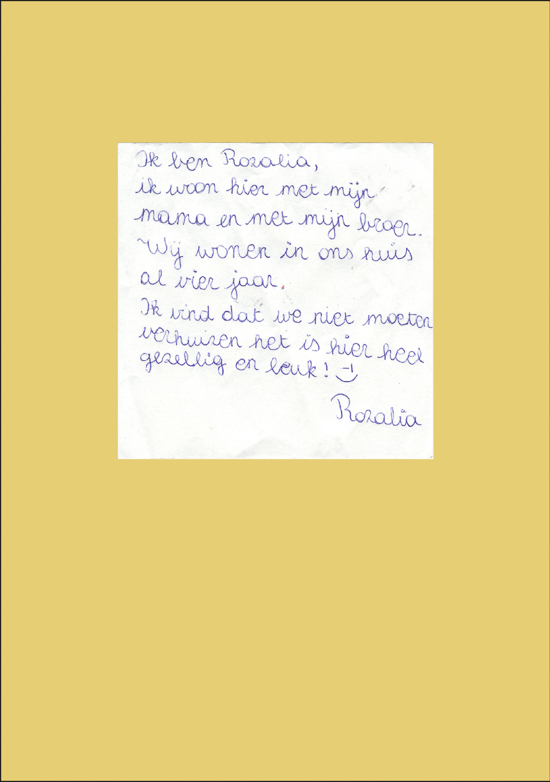 Ik ben Rozalia,
ik woon hier met mijn
mama en met mijn broer.
Wij wonen in ons huis
al vier jaar.
Ik vind dat we niet moeten
verhuizen het is hier heel
gezellig en leuk! :-)
Rozalia